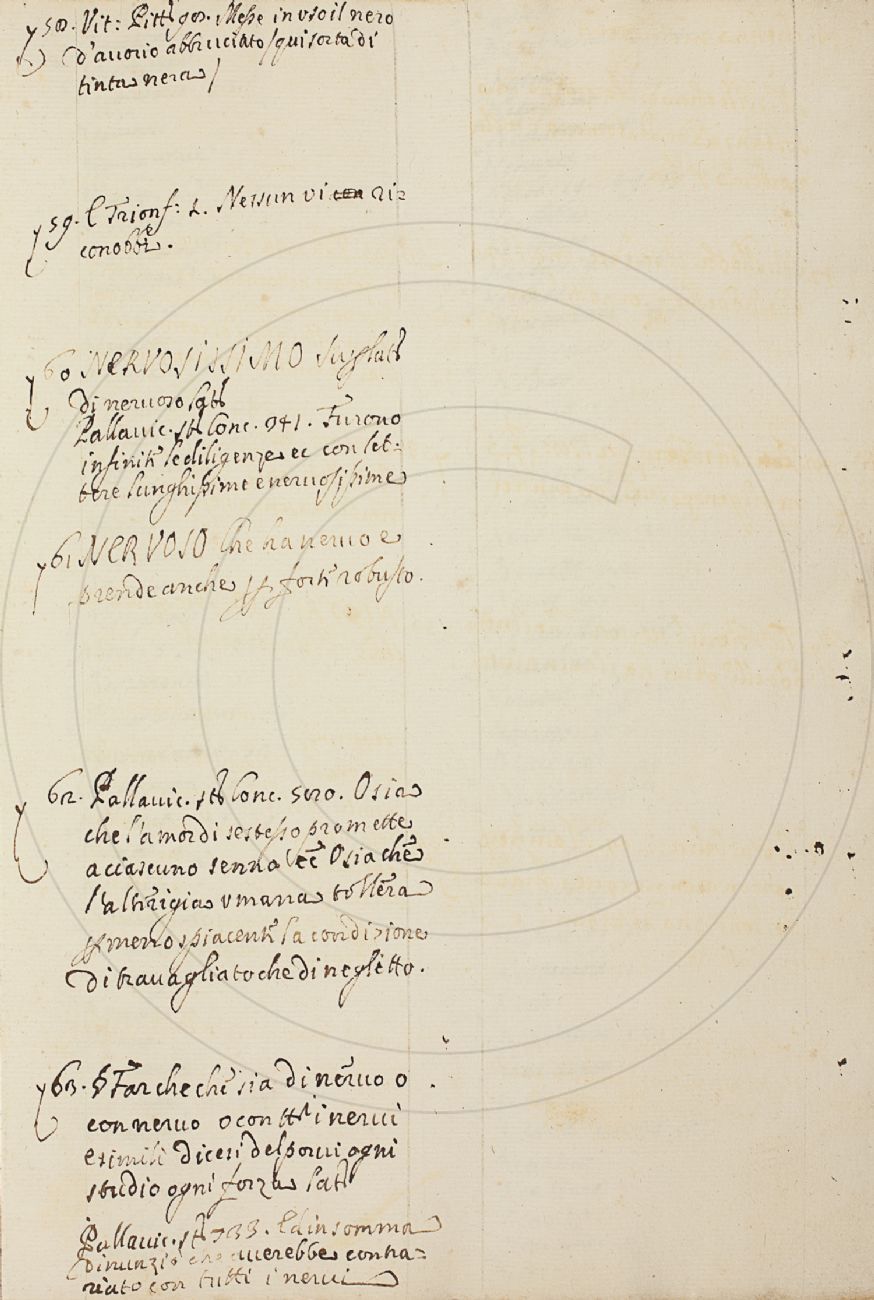 58. Vit: Pitt. 90. Messe in uso il nero
d'auorio abbruciato / qui sorta di
tinta nera /
59. E Trionf: 2. Nessun vi ri=
conobbi.
60 NERVOSISSIMO Suplat.
di neruoso lat.
Pallauic. st. Conc. 941. Furono
infinite le diligenze ec con let=
tere lunghissime e neruosissime
61 NERVOSO Che ha neruo e
prende anche p forte robusto.
62. Pallauic. st. Conc. 520. O sia
che l'amor di se stesso promette
a ciascuno senno ec O sia che
l'alterigia umana tollera
p meno spiacente la condizione
di trauagliato che di negletto.
63. § Far che che sia di neruo o
con neruo o con tt i nerui
e simili dicesi del porui ogni
studio ogni forza lat.
Pallauic. st. 733. Ed in somma
dinunziò che auerebbe contra=
riato con tutti i nerui